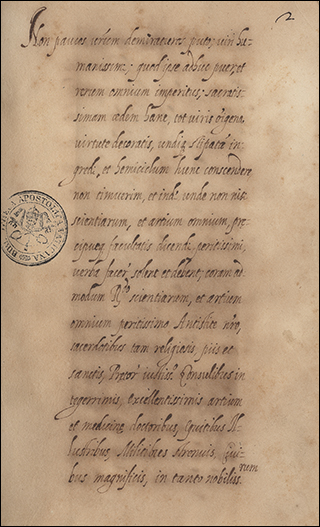 2
Non paucos vestrum demiraturos puto, viri hu-
manissimi; quod ipse adhuc puer, et
rerum omnium imperitus; sacratis-
simam ædem hanc, tot viris ingenio,
virtute decoratis, undiq stipatā in-
gredi, et hemiciclum hunc conscendere
non timuerim, et inde unde non nisi
scientiarum, et artium omnium, pre-
cipueq facultatis dicendi peritissimi,
verba facere solent et debent; coram ad
modum scientiarum, et artium
omnium peritissimo Antistite nro,
sacerdotibus tam religiosis piis et
sanctis, Pretore Consulibus in
tegerrimis, excellentissimis artium
et medicine doctoribus, Equitibus Il-
lustribus, Militibus strenuis, Qui-
bus magnificis, in tanto nobiliss.
rum